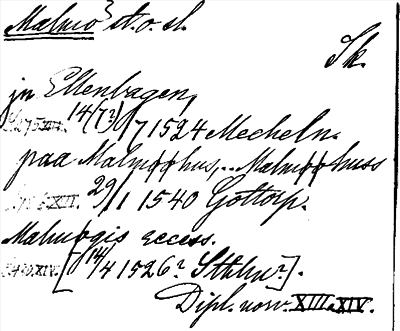 Malmö st. o. sl.
Sk.
jn Ellenbagen,
14(7?)/7 1524 Mecheln.
paa Malmøhus, .. Malmøhuss
29/1 1540 Gottorp.
Malmøgis recess.
[14/4 1526? Sthlm?].
Dipl. norv. XIII. XIV.